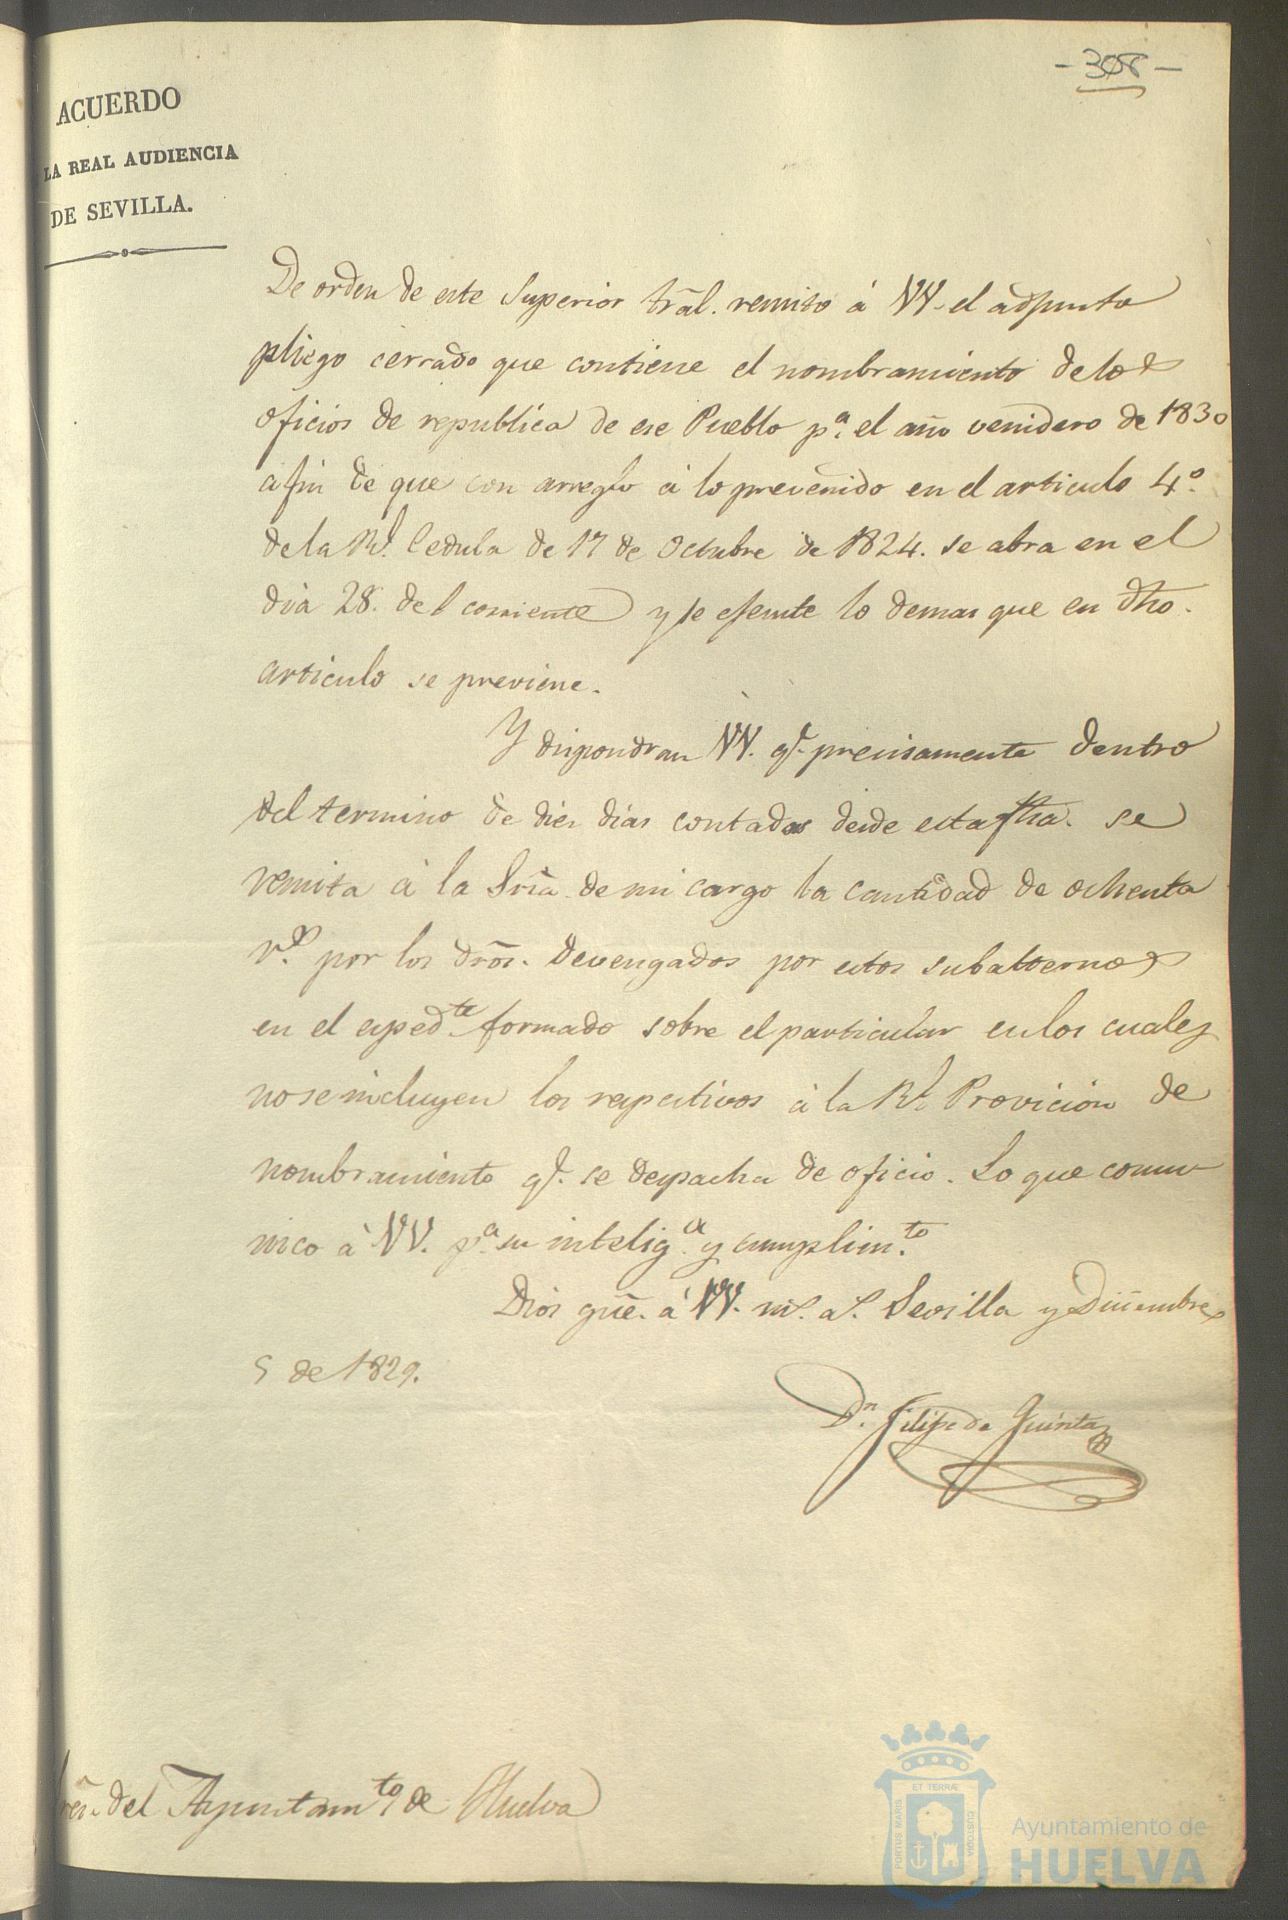 - 308 -
ACUERDO
LA REAL AUDIENCIA
DE SEVILLA.
De orden de este Superior trãl. remito á VV. el adjunto
pliego cerrado que contiene el nombramiento de los
oficios de republica de ese Pueblo pª. el año venidero de 1830
a fin de que con arreglo á lo prevenido en el articulo 4º.
de la Rl. Cedula de 17 de Octubre de 1824. se abra en el
dia 28. del corriente y se efecute lo demas que en dho.
articulo se previene.
Y dispondran VV. qe. precisamente dentro
del termino de dies dias contados desde esta fha. se
remita á la Sria. de mi cargo la cantidad de ochenta
rs. por los drõs. devengados por estos subalternos
en el expedte. formado sobre el particular en los cuales
no se incluyen los respectivos á la Rl. Provicion de
nombramiento qe. se despacha de oficio. Lo que comu-
nico á VV. pª. su inteligª. y cumplimto.
Dios gũe. á VV. ms. as. Sevilla y Diciembre
5 de 1829.
Dn. Felipe de Quinta
res. del Ayuntamto. de Huelva
ET TERRÆ
PORTUS MARIS
CUSTODIA
Ayuntamiento de
HUELVA